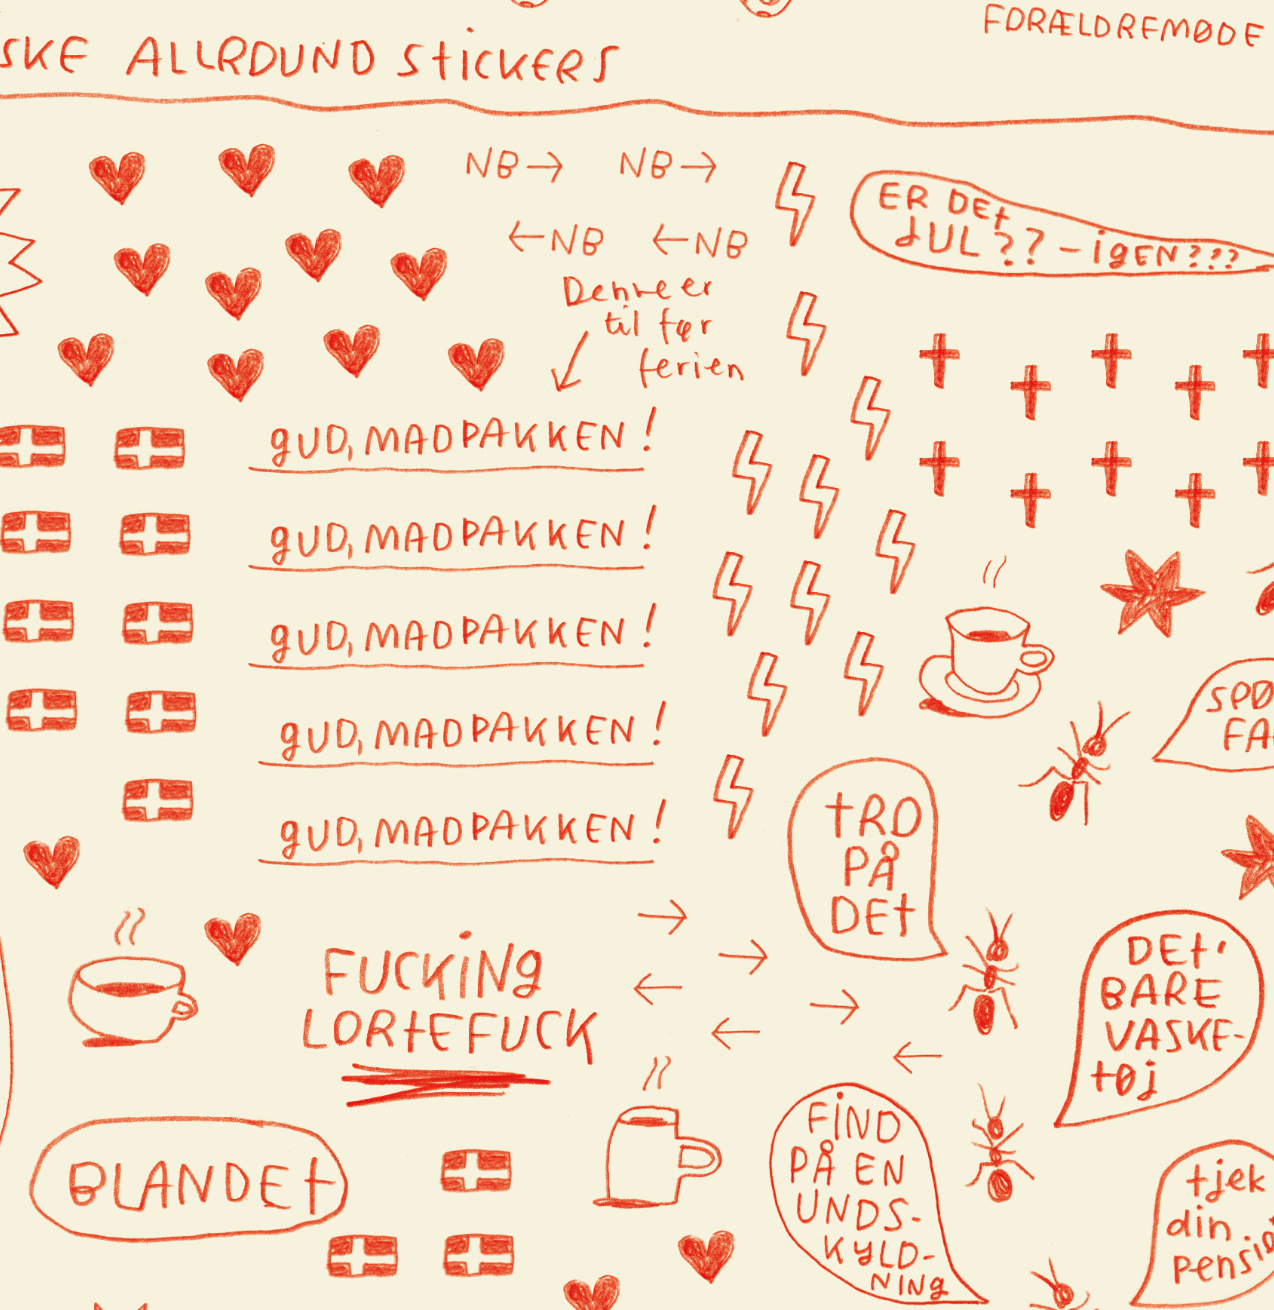 FORÆLDREMØDE
SKE ALLROUND STICKERS
NB → NB →
← NB ← NB
ER DET
JUL?? - IGEN???
Denne er
til før
ferien
gUD, MADPAKKEN!
gUD, MADPAKKEN!
gUD, MADPAKKEN!
gUD, MADPAKKEN!
gUD, MADPAKKEN!
TRO
PÅ
DET
DET'
BARE
VASKE-
TØJ
FUCKING
LORTEFUCK
BLANDET
FIND
PÅ EN
UNDS-
KYLD-
NING
tjek
din